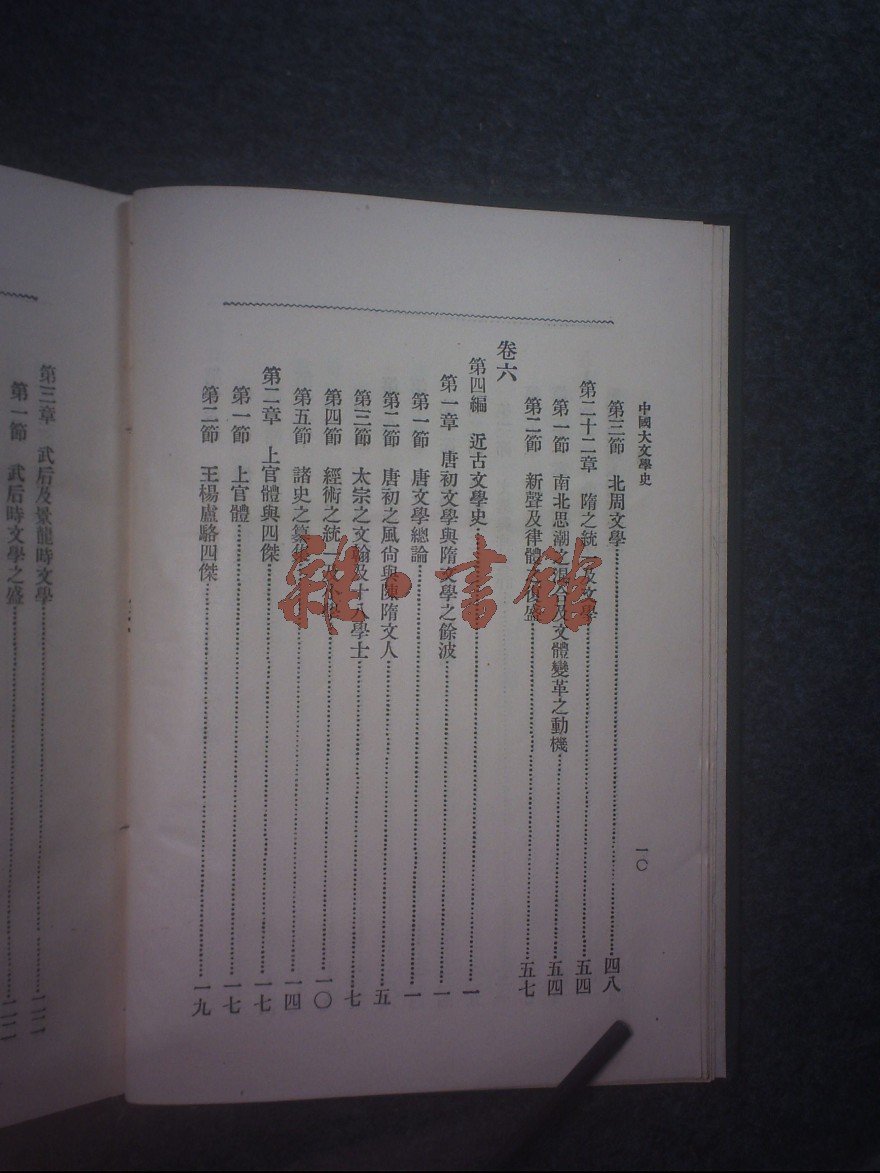 中國大文學史
一〇
第三節 北周文學 四八
第二十二章 隋之統一及文學 五四
第一節 南北思潮之混合及文體變革之動機 五四
第二節 新聲及律體 盛 五七
卷六
第四編 近古文學史 一
第一章 唐初文學與隋文學之餘波 一
第一節 唐文學總論 一
第二節 唐初之風尙與陳隋文人 五
第三節 太宗之文翰及十八學士 七
第四節 經術之統一 一〇
第五節 諸史之纂 一四
第二章 上官體與四傑 一七
第一節 上官體 一七
第二節 王楊盧駱四傑 一九
第三章 武后及景龍時文學
第一節 武后時文學之盛
雜·書館